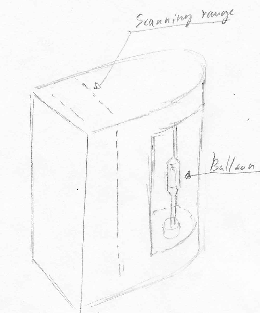 Scanning range
Balloon